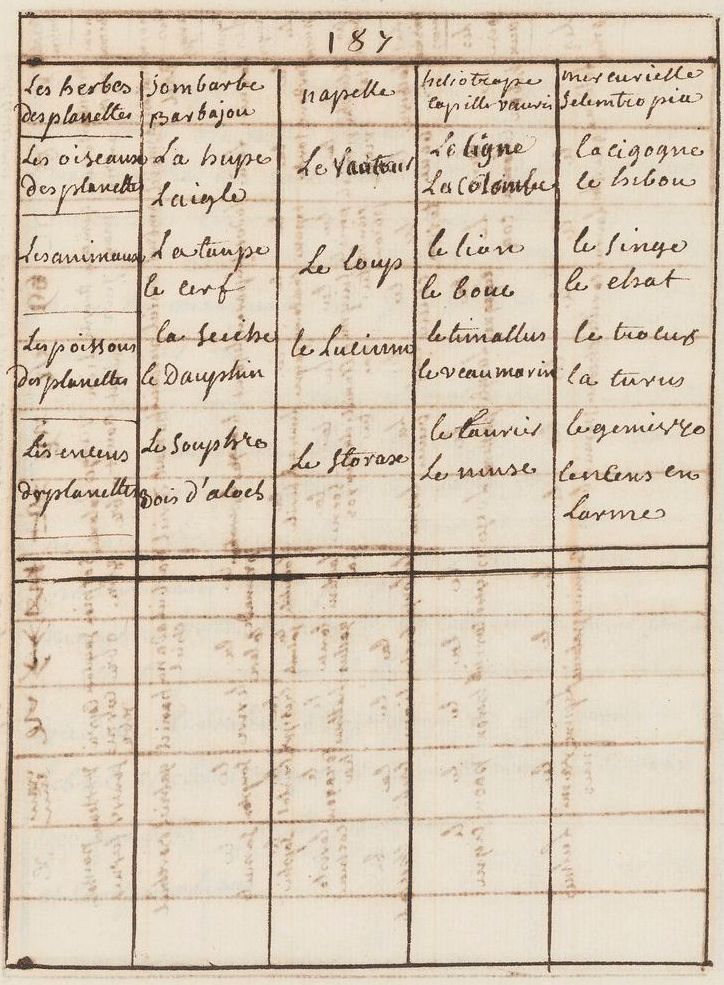 187
Les herbes jombarbe napelle heliotrope mercurielle
des planettes Barbajou capille vaneris Selemtropia
Les oiseaux La hupe Le Vautour Le Cigne la cigogne
des planettes Laigle La Colombe le hibou
Les animaux La taupe Le loup le lion le singe
le cerf le bouc le chat
Les poissons la seiche le Lucium le timallus le
des planettes le Dauphin le veau marin la
Les encens Le souphre Le Storax le Laurier le
des planettes Bois d'aloes Le muse lencens en
Larme